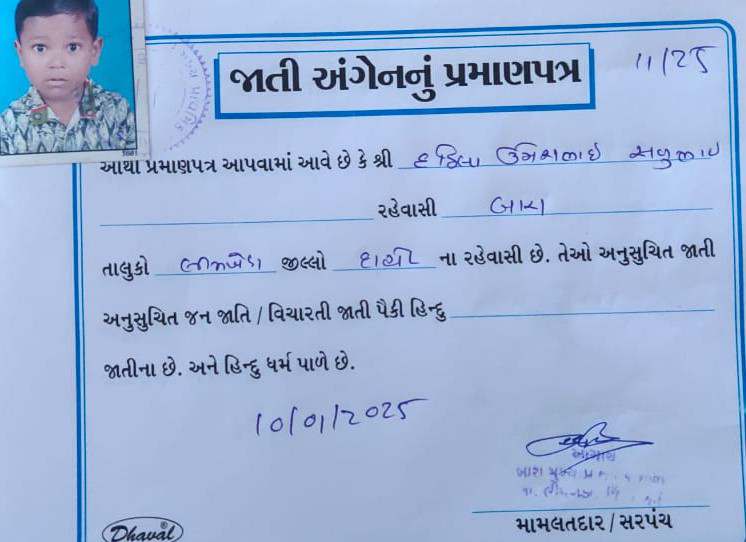 જાતી અંગેનનું પ્રમાણપત્ર
11/25
આથી પ્રમાણપત્ર આપવામાં આવે છે કે શ્રી ઉમેશભાઇ
રહેવાસી બારા
તાલુકો લીમખેડા જીલ્લો દાહોદ ના રહેવાસી છે. તેઓ અનુસુચિત જાતી
અનુસુચિત જન જાતિ / વિચારતી જાતી પૈકી હિન્દુ
જાતીના છે. અને હિન્દુ ધર્મ પાળે છે.
10/01/2025
આચાર્ય
મામલતદાર / સરપંચ
Dhaval